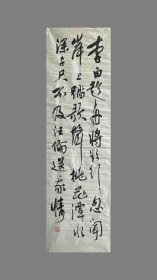 李白乘舟将欲行忽闻
岸上踏歌声桃花潭水
深千尺不及汪伦送我情